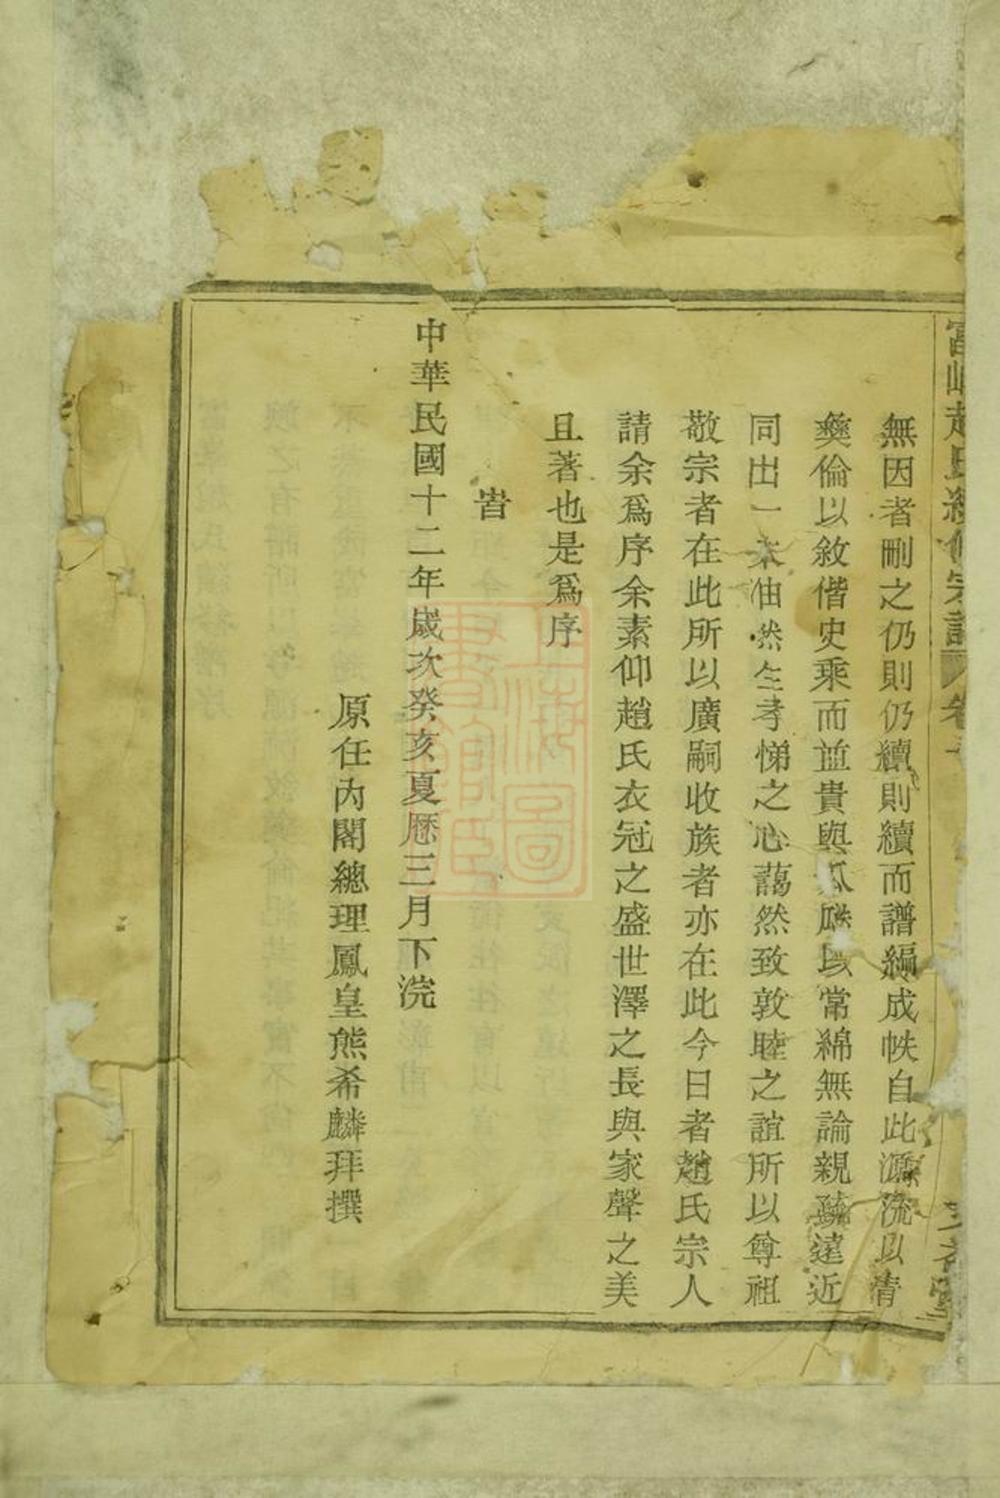 趙氏續修宗譜 卷
無因者刪之仍則仍續則續而譜編成帙自此源流以清
彝倫以敘偕史乘而並貴與瓜瓞以常綿無論親疏遠近
同出一本油然生孝悌之心藹然致敦睦之誼所以尊祖
敬宗者在此所以廣嗣收族者亦在此今日者趙氏宗人
請余爲序余素仰趙氏衣冠之盛世澤之長與家聲之美
且著也是爲序
旹
中華民國十二年歲次癸亥夏厯三月下浣
原任內閣總理鳳皇熊希麟拜撰
上海圖書館藏